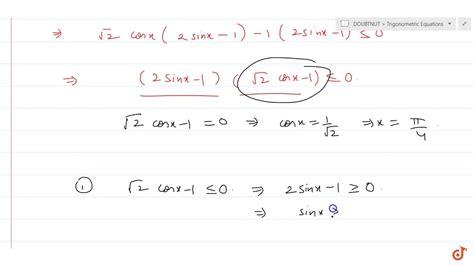 DOUBTNUT > Trigonometric Equations
⇒ √2 cosx ( 2 sinx – 1 ) – 1 ( 2 sinx – 1 ) ≤ 0
⇒ ( 2 sinx – 1 ) ( √2 cosx – 1 ) ≤ 0.
√2 cosx – 1 = 0 ⇒ cosx = 1/√2 ⇒ x = π/4
① √2 cosx – 1 ≤ 0. ⇒ 2 sinx – 1 ≥ 0.
⇒ sinx